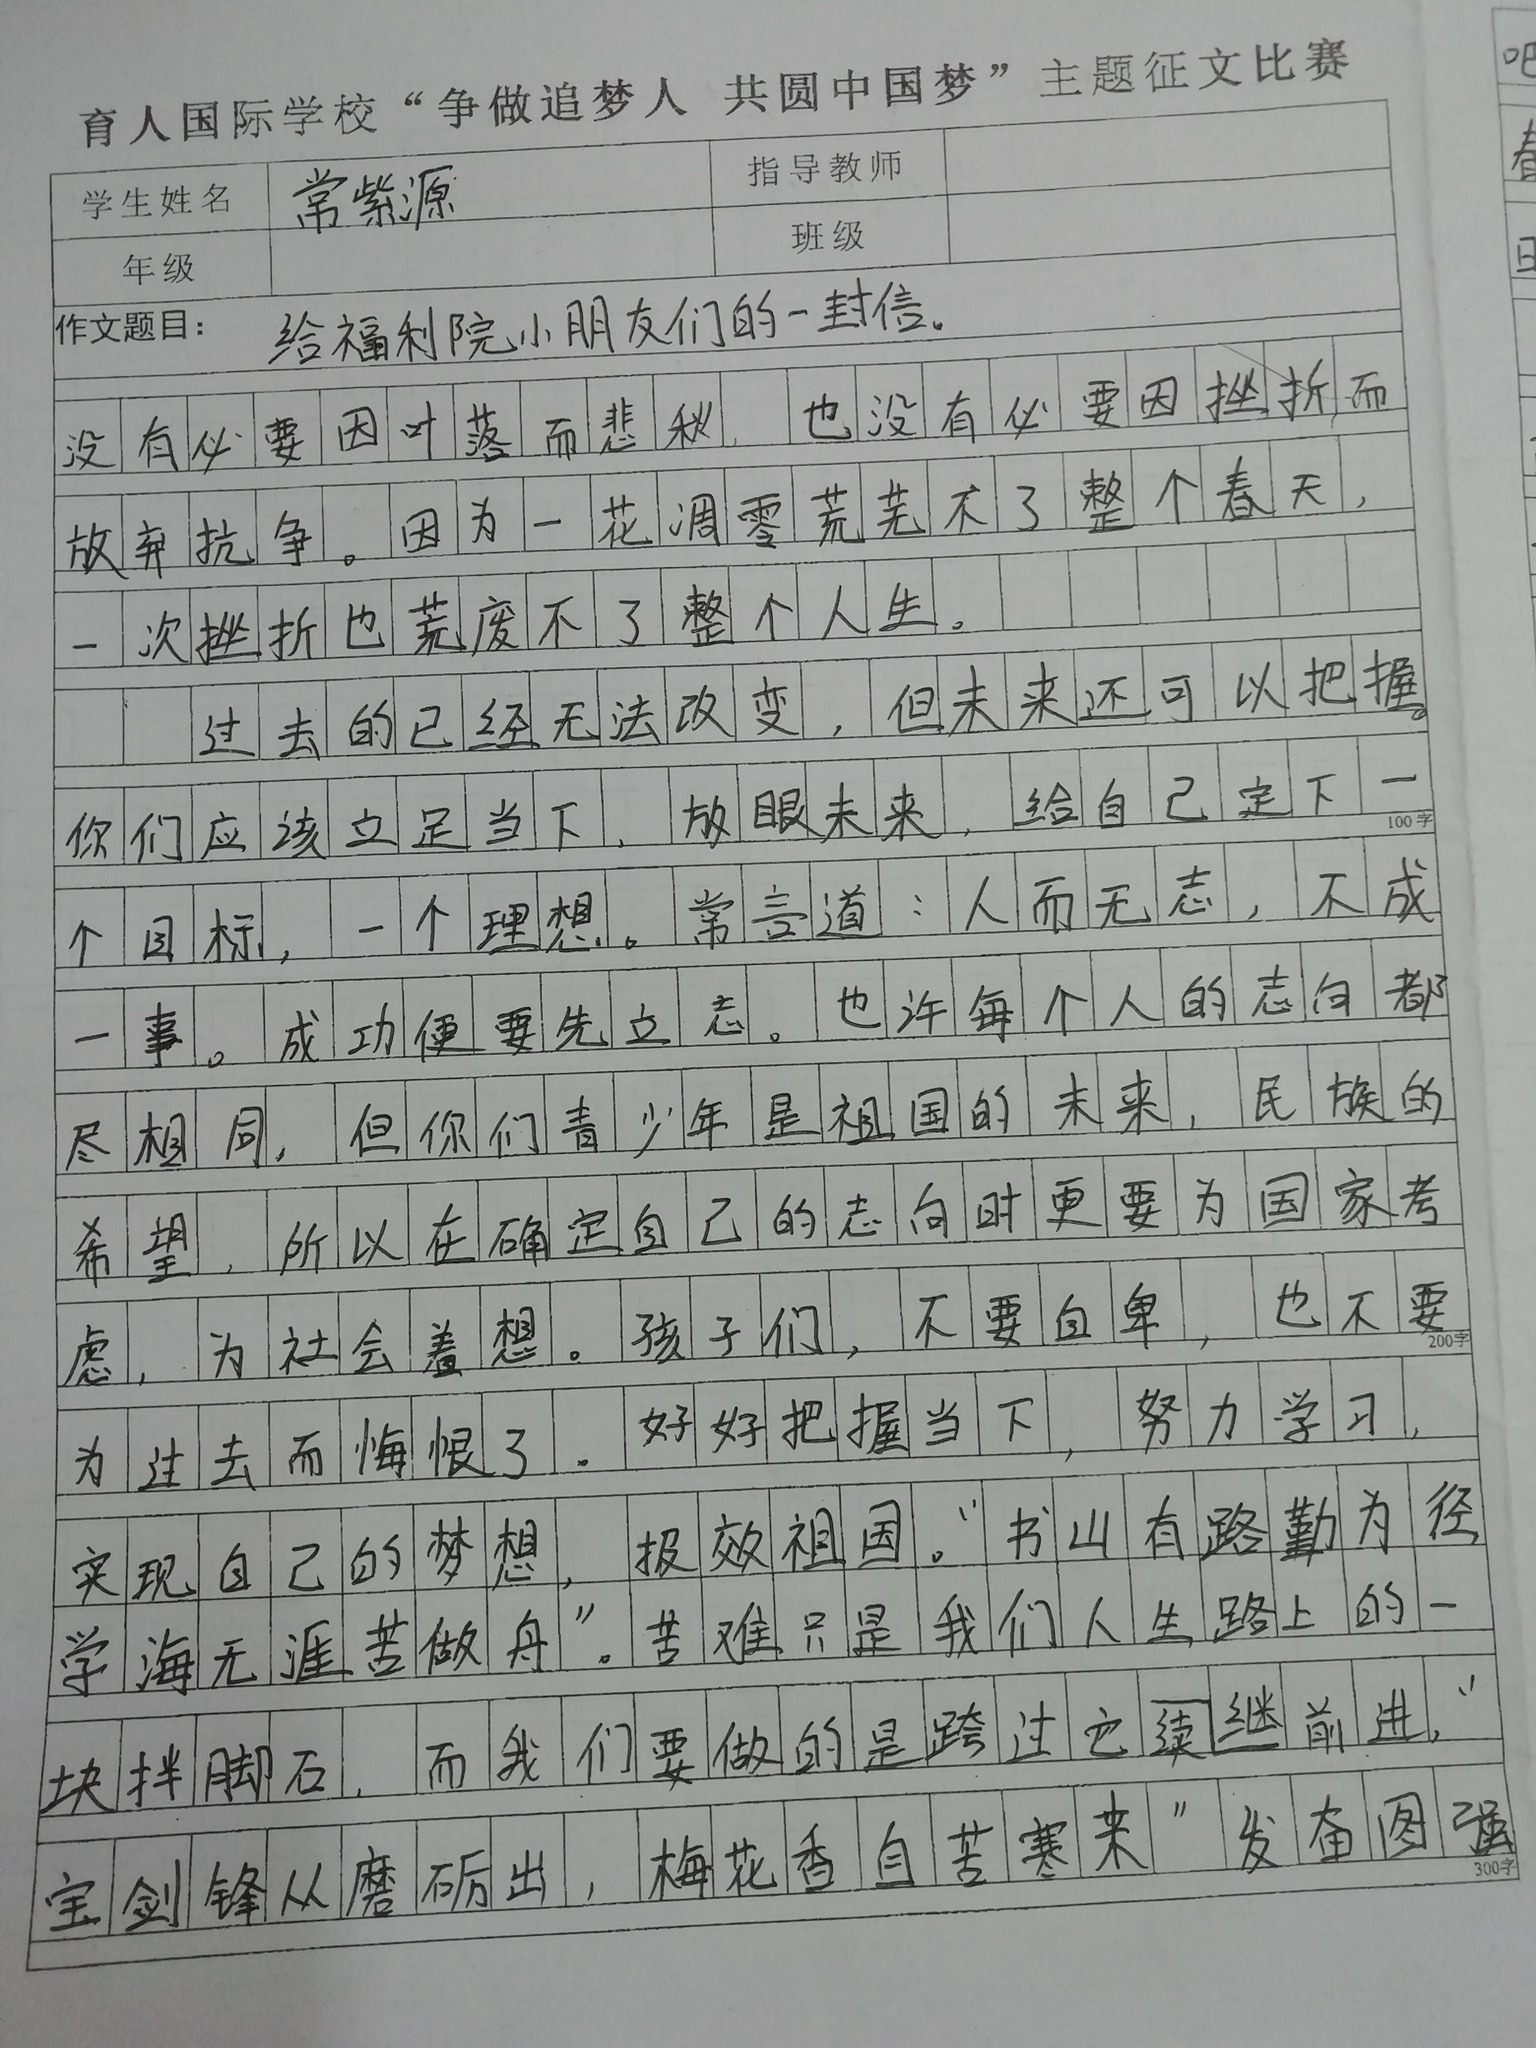 育人国际学校“争做追梦人 共圆中国梦”主题征文比赛
学生姓名 常紫源 指导教师
年级 班级
作文题目： 给福利院小朋友们的一封信。
没有必要因叶落而悲秋，也没有必要因挫折而
放弃抗争。因为一花凋零荒芜不了整个春天，
一次挫折也荒废不了整个人生。
过去的已经无法改变，但未来还可以把握。
你们应该立足当下，放眼未来，给自己定下一
100字
个目标，一个理想。常言道：人而无志，不成
一事。成功便要先立志。也许每个人的志向都
尽相同，但你们青少年是祖国的未来，民族的
希望，所以在确定自己的志向时更要为国家考
虑，为社会着想。孩子们，不要自卑，也不要
200字
为过去而悔恨了．好好把握当下，努力学习，
实现自己的梦想，报效祖国。“书山有路勤为径
学海无涯苦做舟”。苦难只是我们人生路上的一
块拌脚石，而我们要做的是跨过它续继前进，“
宝剑锋从磨砺出，梅花香自苦寒来”发奋图强
300字
吧
春